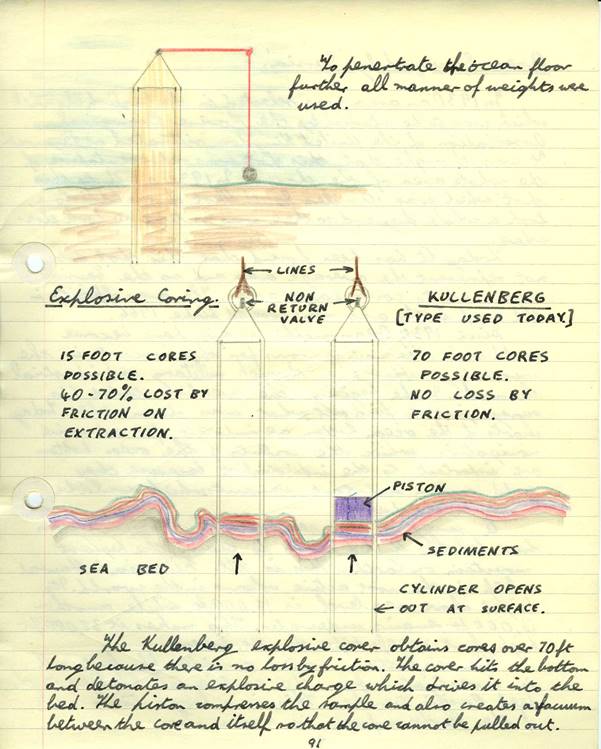 To penetrate the ocean floor
further all manner of weights were
used.
LINES
Explosive Coring.
NON
RETURN
VALVE
KULLENBERG
[TYPE USED TODAY]
15 FOOT CORES
POSSIBLE.
40-70% LOST BY
FRICTION ON
EXTRACTION.
70 FOOT CORES
POSSIBLE.
NO LOSS BY
FRICTION.
PISTON
SEDIMENTS
SEA BED
CYLINDER OPENS
OUT AT SURFACE.
The Kullenberg explosive corer obtains cores over 70ft
long because there is no loss by friction. The corer hits the bottom
and detonates an explosive charge which drives it into the
bed. The piston compresses the sample and also creates a vacuum
between the core and itself so that the core cannot be pulled out.
91